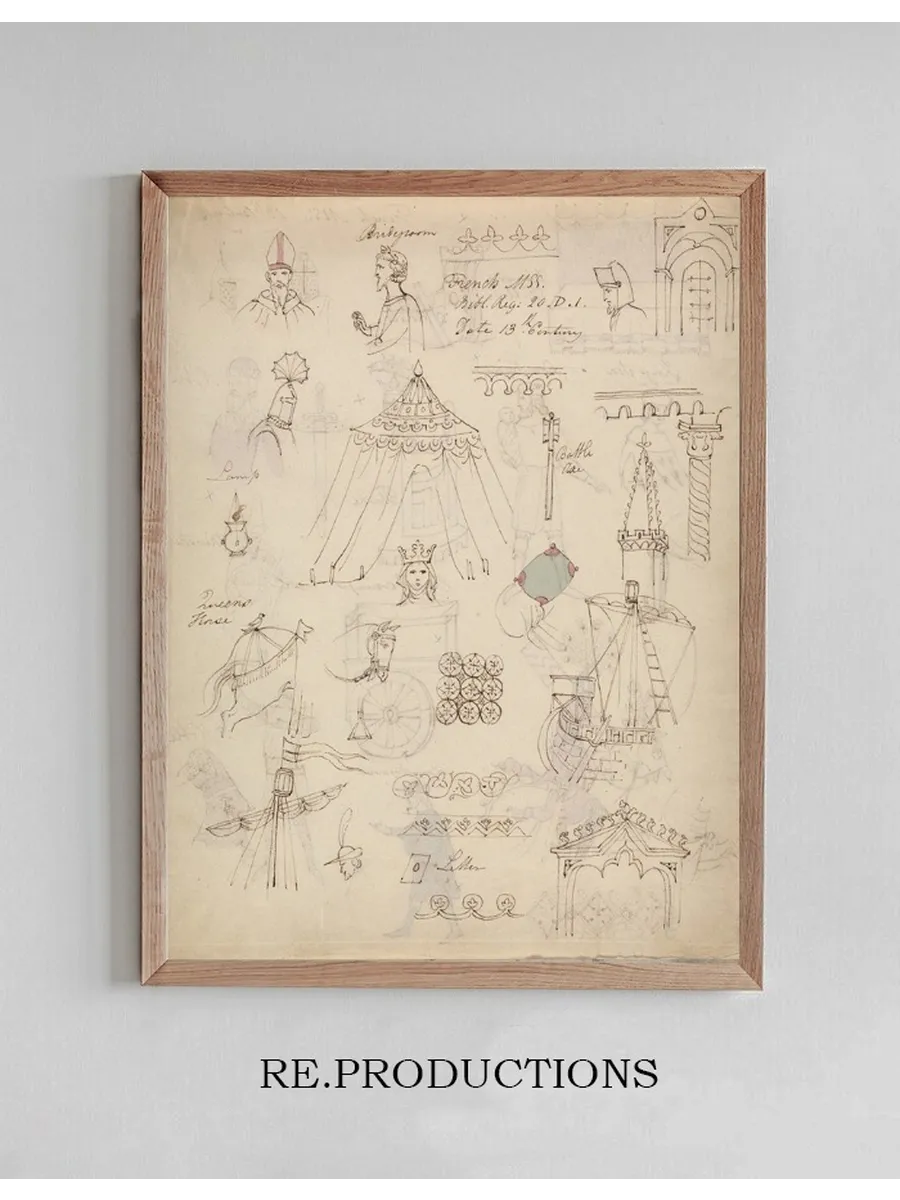 Bridegroom
French MSS.
Bibl. Reg: 20.D.1.
Date 13th Century
Battle
Axe
Lamp
Queens
Horse
Letter
RE.PRODUCTIONS